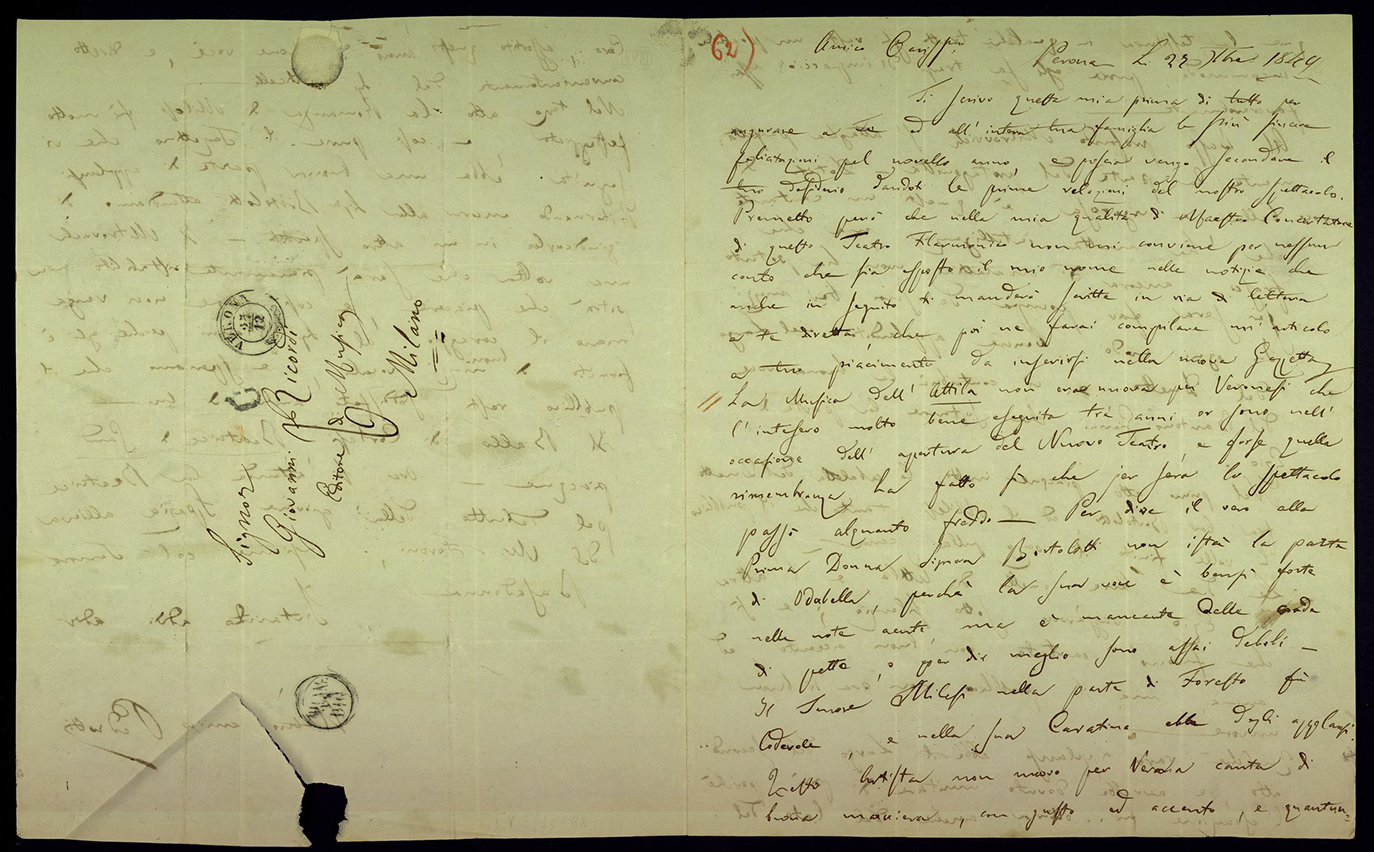 Signor
Giovanni Ricordi
Editore di Musica
Milano
VERONA
27
12
62)
Amico Carissimo
Verona Li 27 Xbre 1849
Ti scrivo questa mia prima di tutto per
augurare a Te ed all' intera tua famiglia le più sincere
felicitazioni pel novello anno, e poscia vengo secondare il
tuo desiderio dandoti le prime relazioni del nostro spettacolo.
Premetto però che nella mia qualità di Maestro Concertatore
di questo Teatro Filarmonico non mi conviene per nessun
conto che sia esposto il mio nome nelle notizie che
anche in seguito ti manderò scritte in via di lettera
a te diretta, che poi ne farai compilare un' articolo
a tuo piacimento da inserirsi nella nuova Gazzetta
La Musica dell' Attila non era nuova pei Veronesi che
l' intesero molto bene eseguita tre anni or sono nell'
occasione dell' apertura del Nuovo Teatro e forse quella
rimembranza ha fatto sì che jer sera lo spettacolo
passò alquanto freddo — Per dire il vero alla
Prima Donna Signora Bortolotti non istà la parte
di Odabella, perchè la sua voce è bensì forte
nelle note acute, ma è mancante delle corde
di petto, o per dir meglio sono assai deboli —
Il Tenore Milesi nella parte di Foresto fù
lodevole, e nella sua Cavatina ebbe degli applausi.
Questo Artista non nuovo per Verona canta di
buona maniera, con gusto ed accento, e quantun=